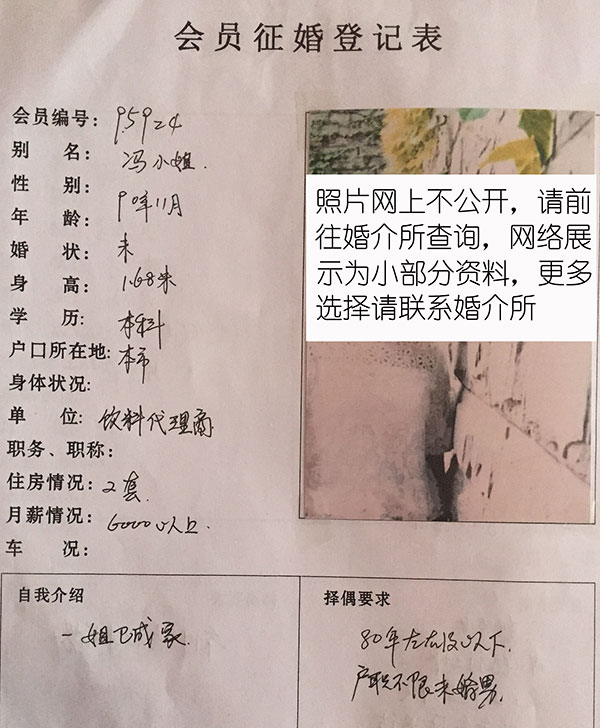 会员征婚登记表
会员编号：95924
别 名：冯小姐.
性 别：
年 龄：90年11月
婚 状：未
身 高：1.68米
学 历：本科
户口所在地：本市
身体状况：
单 位：饮料代理商
职务、职称：
住房情况：2套.
月薪情况：6000以上.
车 况：
照片网上不公开，请前
往婚介所查询，网络展
示为小部分资料，更多
选择请联系婚介所
自我介绍
一姐已成家.
择偶要求
80年左右及以下.
户职不限未婚男.